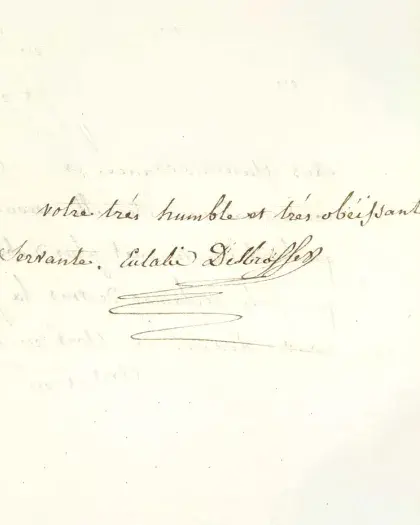 votre trés humble et trés obéissant
Servante. Eulalie Delbrosses